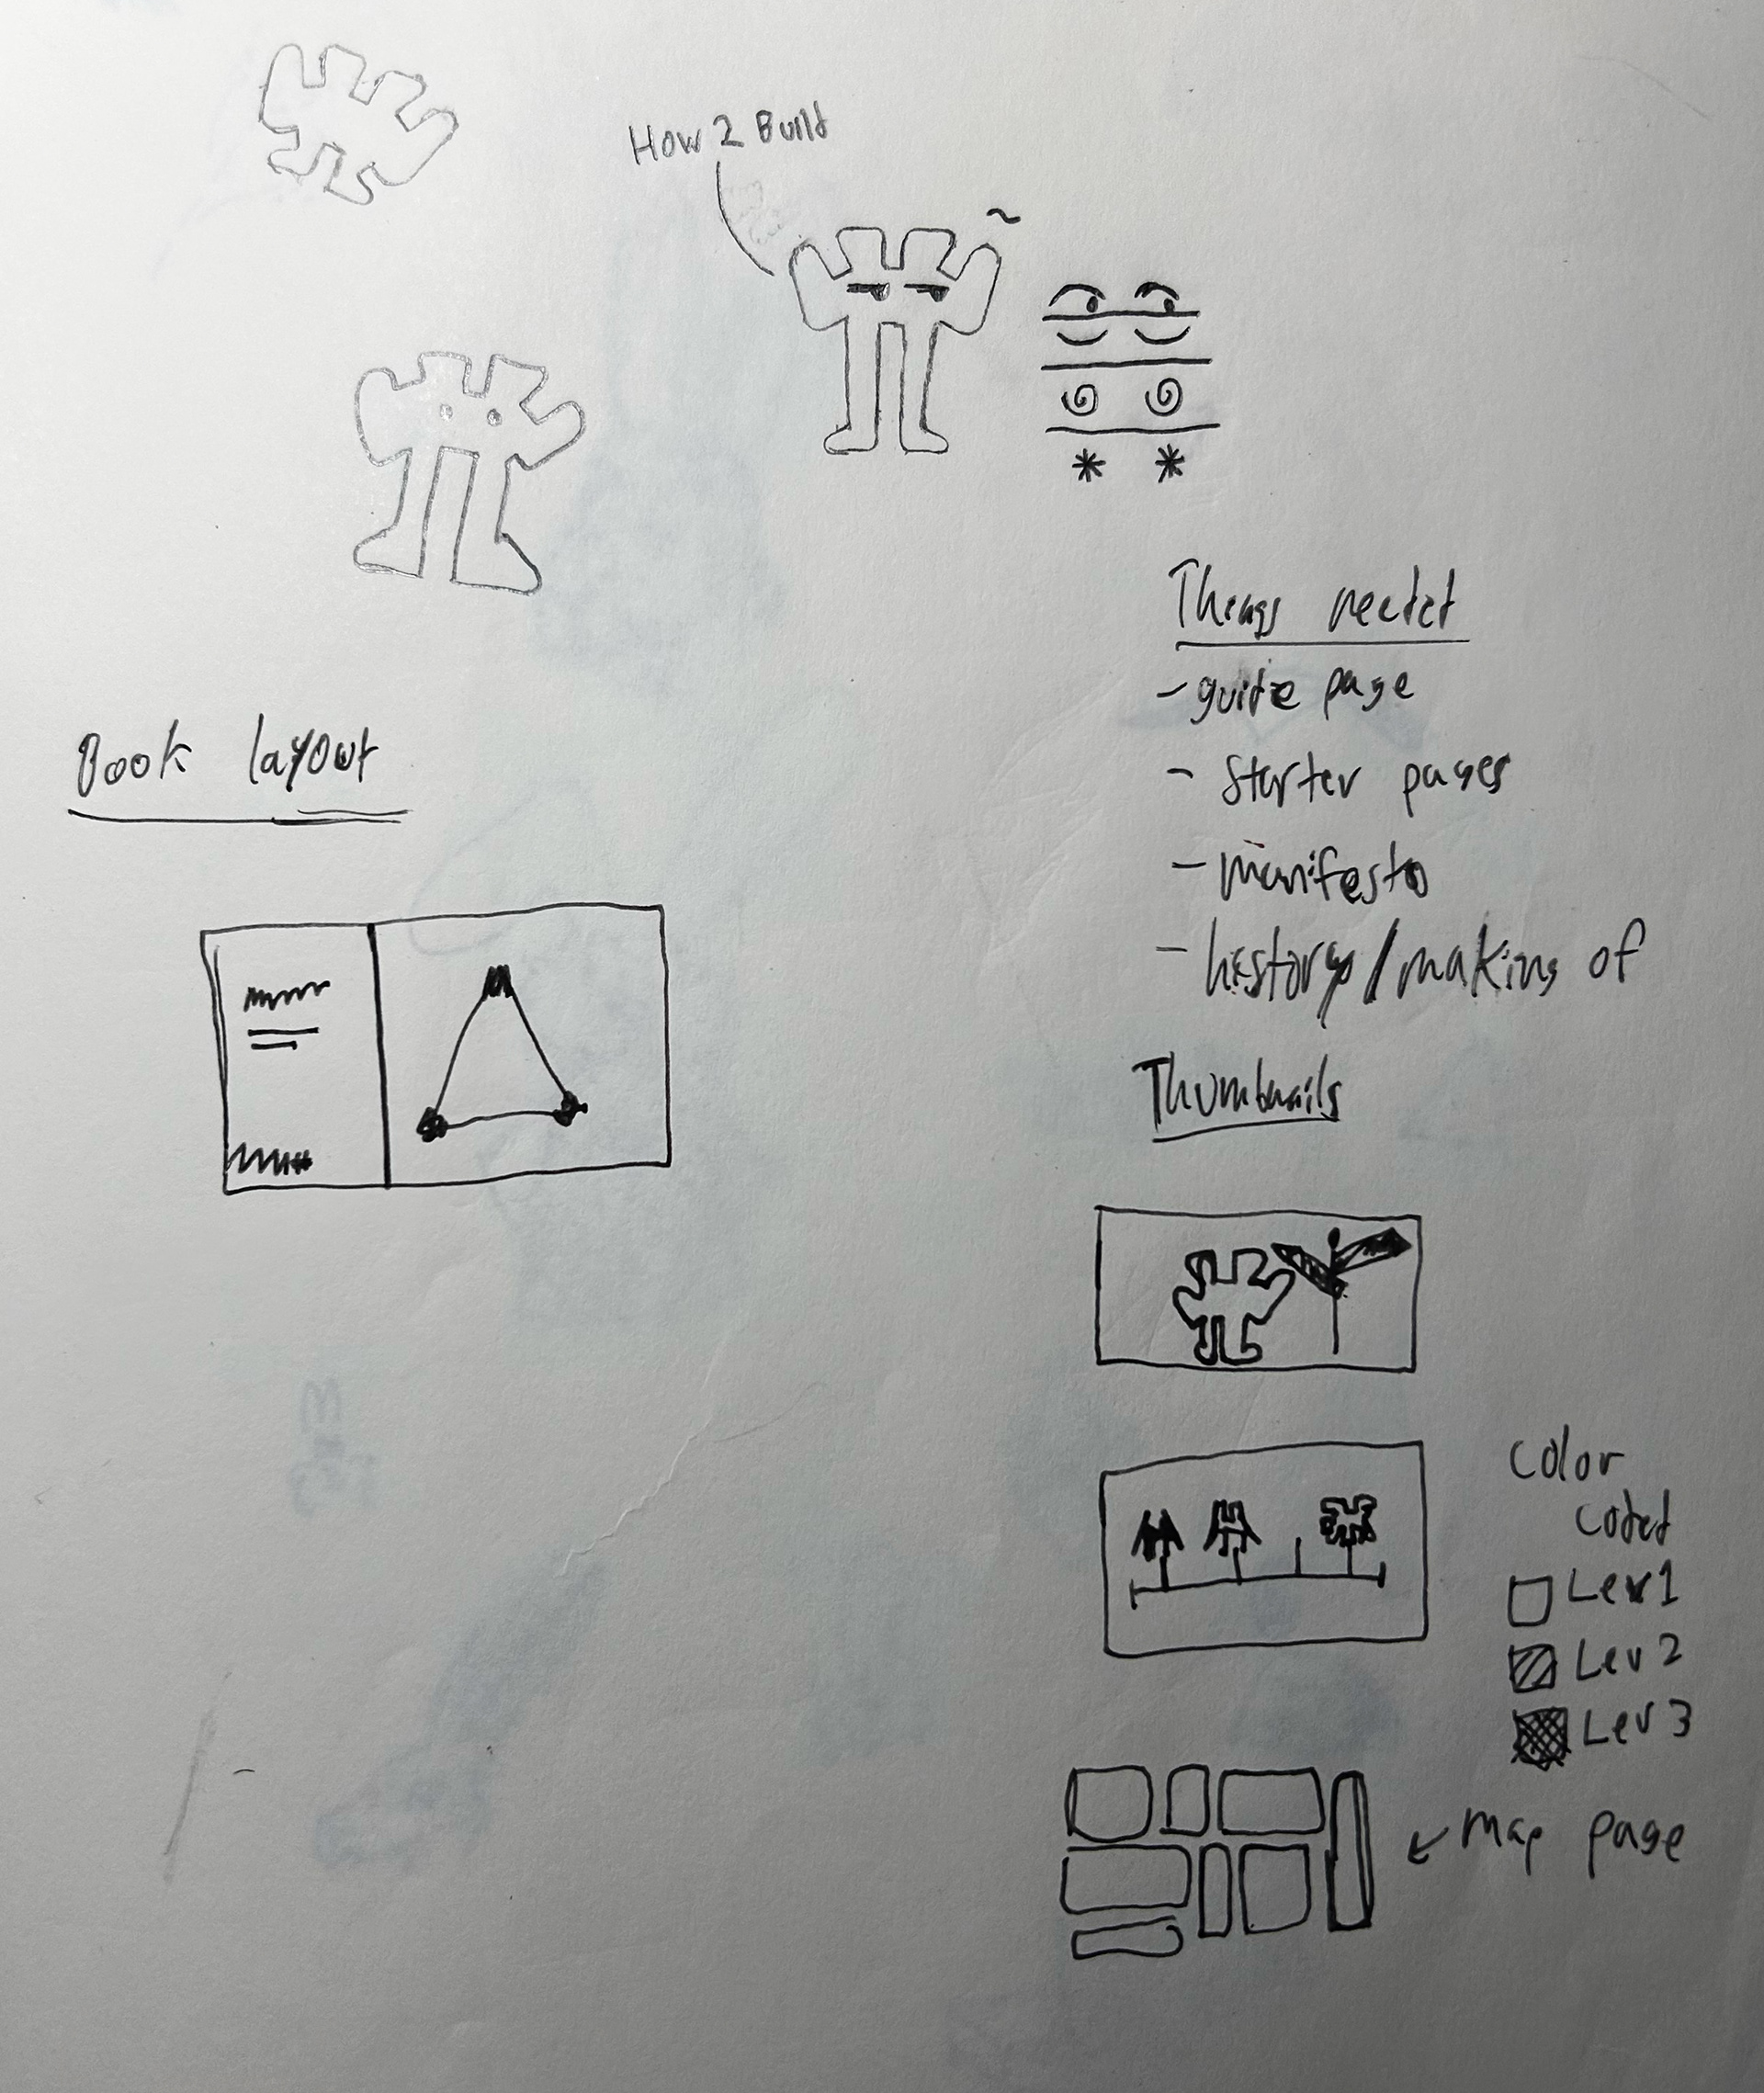 How 2 Build
Things needed
- guide page
- Starter pages
- Manifesto
- history/making of
Book layout
Thumbnails
Color
Coded
Lev 1
Lev 2
Lev 3
Map page